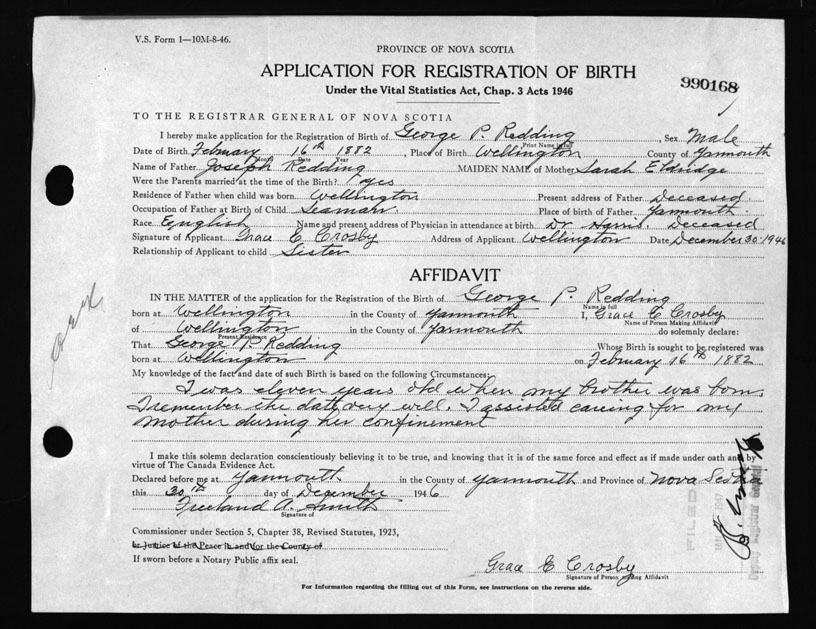 V.S. Form 1—10M-8-46.
PROVINCE OF NOVA SCOTIA
APPLICATION FOR REGISTRATION OF BIRTH
990168
Under the Vital Statistics Act, Chap. 3 Acts 1946
TO THE REGISTRAR GENERAL OF NOVA SCOTIA
I hereby make application for the Registration of Birth of George P. Redding, Sex Male
Print Name in full
Date of Birth February 16th 1882, Place of Birth Wellington County of Yarmouth
Month Date Year
Name of Father Joseph Redding MAIDEN NAME of Mother Sarah Eldridge
Were the Parents married at the time of the Birth? Yes
Residence of Father when child was born Wellington Present address of Father Deceased.
Occupation of Father at Birth of Child Seaman. Place of birth of Father Yarmouth.
Race English Name and present address of Physician in attendance at birth Dr Harris. Deceased
Signature of Applicant Grace E Crosby Address of Applicant Wellington Date December 30. 1946
Relationship of Applicant to child Sister
AFFIDAVIT
IN THE MATTER of the application for the Registration of the Birth of George P. Redding
Name in full
born at Wellington in the County of Yarmouth I, Grace E Crosby
Name of Person Making Affidavit
of Wellington in the County of Yarmouth do solemnly declare:
Present Residence
That George P. Redding Whose Birth is sought to be registered was
born at Wellington on February 16th 1882
My knowledge of the fact and date of such Birth is based on the following Circumstances:
I was eleven years old when my brother was born,
I remember the date very well. I assisted careing for my
mother during her confinement
I make this solemn declaration conscientiously believing it to be true, and knowing that it is of the same force and effect as if made under oath and by
virtue of The Canada Evidence Act.
Declared before me at Yarmouth in the County of Yarmouth and Province of Nova Scotia
this 30th day of December 1946
Freeland A. Smith
Signature of
Commissioner under Section 5, Chapter 38, Revised Statutes, 1923,
or Justice of the Peace in and for the County of
If sworn before a Notary Public affix seal.
Grace E Crosby
Signature of Person making Affidavit
For Information regarding the filling out of this Form, see instructions on the reverse side.
FILED